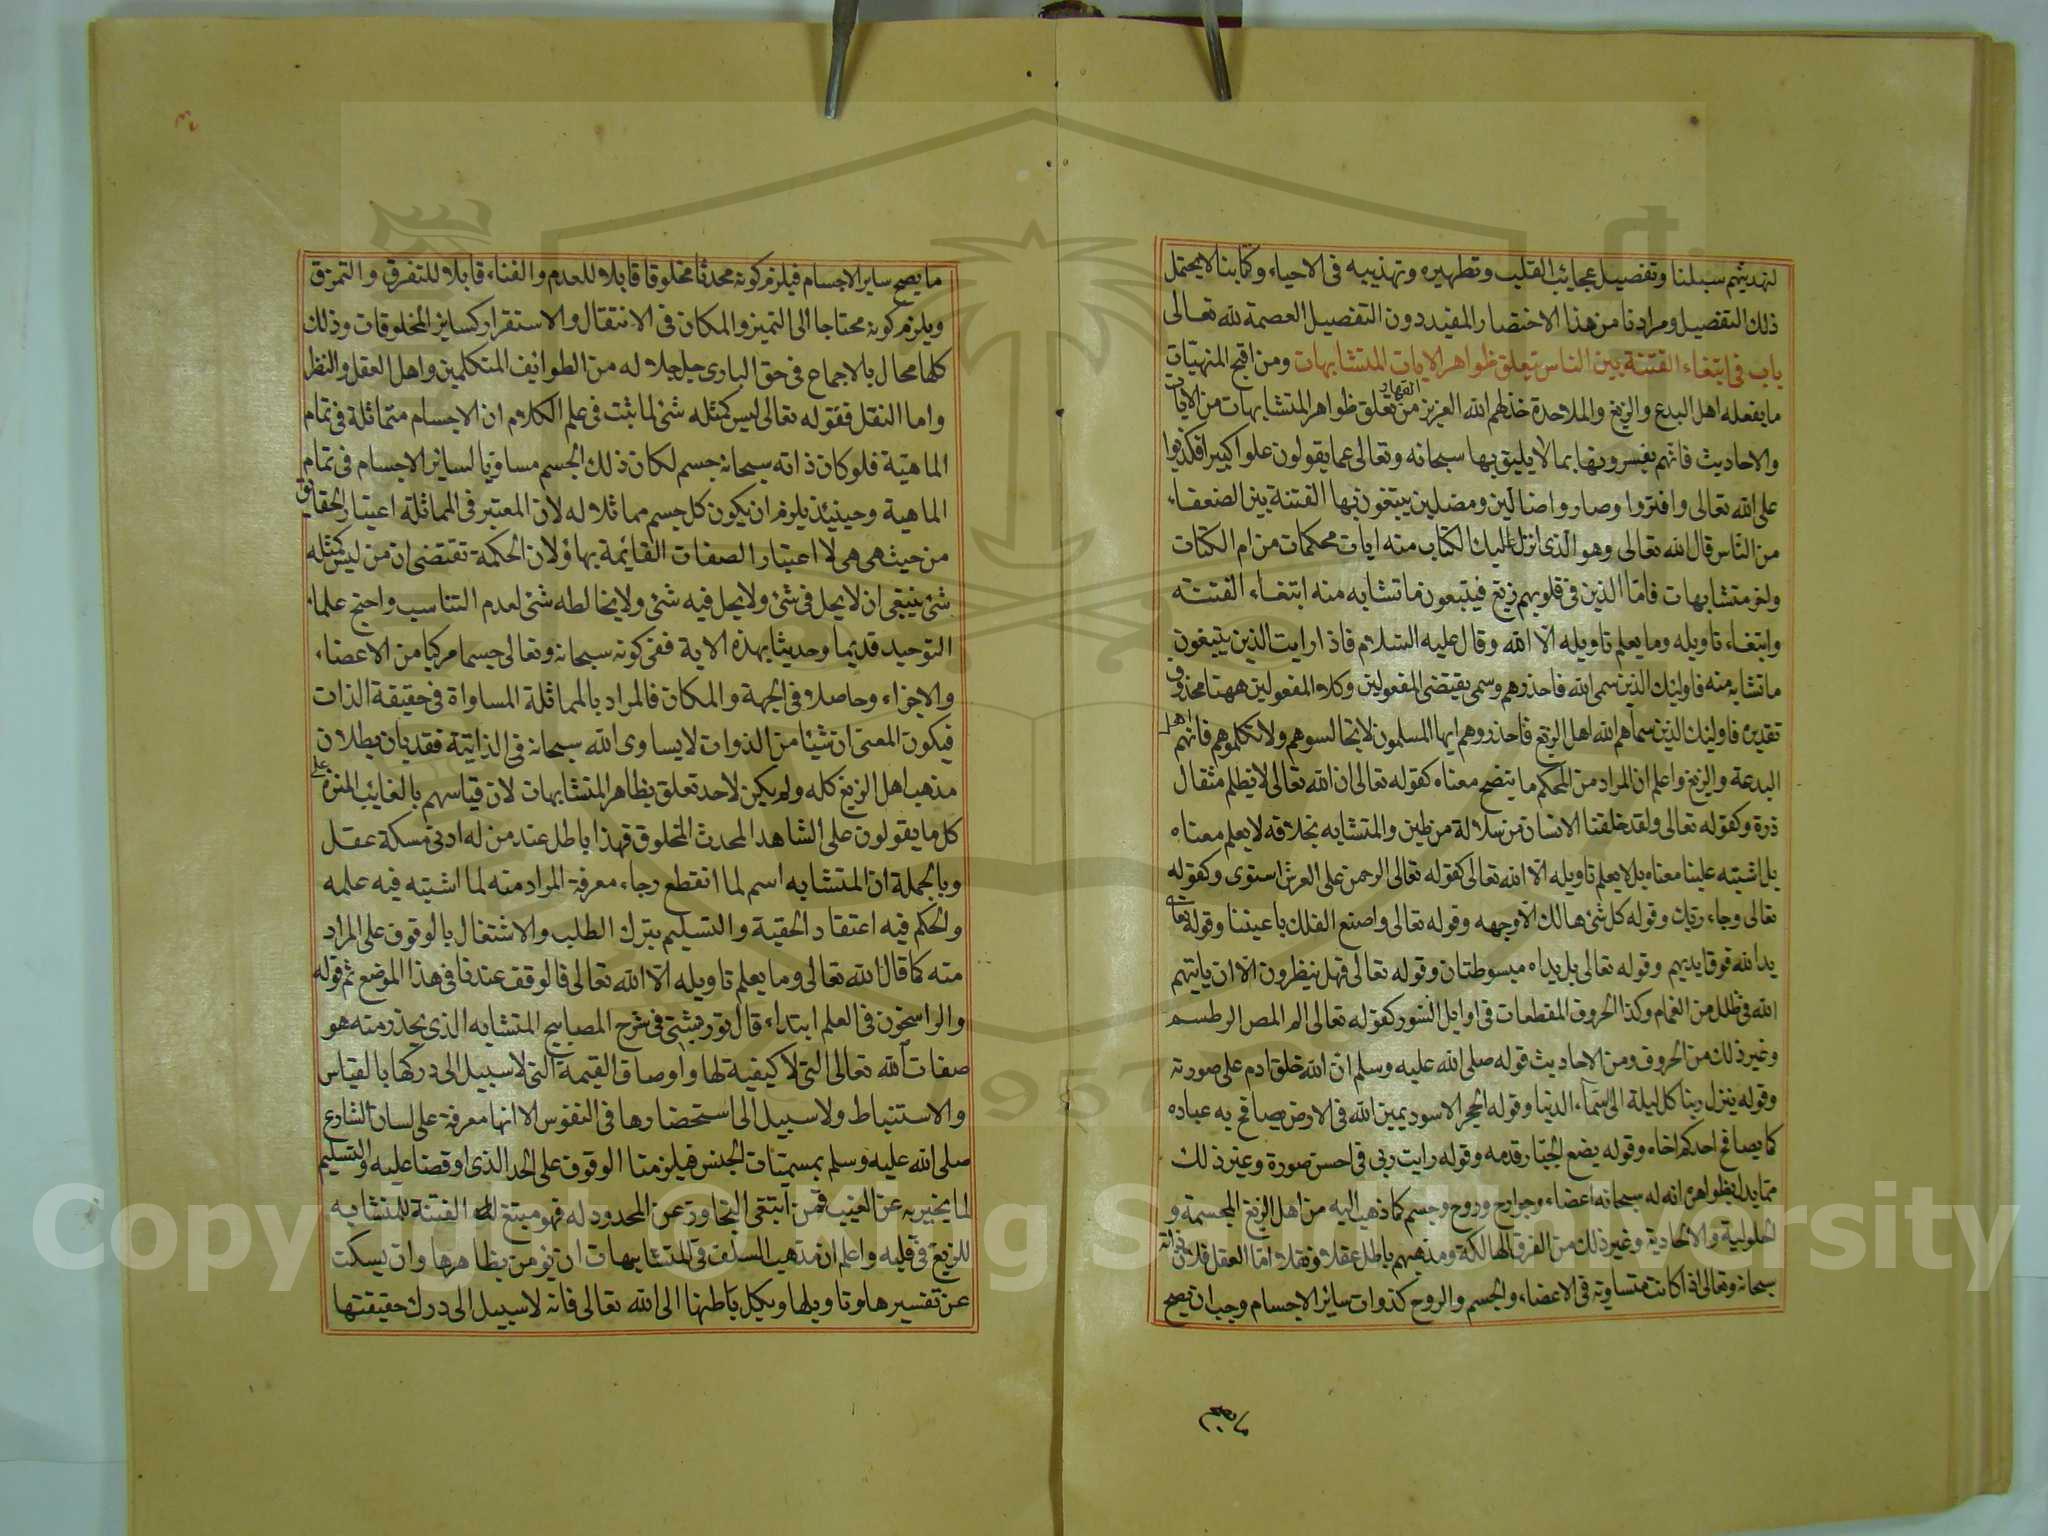 لنهدينهم سبلنا وتفضيل عجائب القلب وتطهيره وتهذيبه فى الاحياء وكتابنا لا يحتمل
ذلك التفصيل ومرادنا من هذا الاختصار المفيد دون التفصيل العصمة لله تعالى
باب فى ابتغاء الفتنة بين الناس تعلق ظواهر الايات المتشابهات ومن اقبح المنهيات
ما يفعله اهل البدع والزيغ والملاحدة خذلهم الله العزيز القهار من تعلق ظواهر المتشابهات من الايات
والاحاديث فانهم يفسرونها بما لا يليق بها سبحانه وتعالى عما يقولون علوا كبيرا فكذبوا
على الله تعالى وافتروا وصاروا ضالين ومضلين يبتغون بها الفتنة بين الضعفاء
من الناس قال الله تعالى وهو الذى انزل عليك الكتاب منه ايات محكمات من ام الكتاب
واخر متشابهات فاما الذين فى قلوبهم زيغ فيتبعون ما تشابه منه ابتغاء الفتنة
وابتغاء تاويله وما يعلم تاويله الا الله وقال عليه السلام فاذا رايت الذين يتبعون
ما تشابه منه فاولئك الذين سمى الله فاحذرهم وسمى يقتضى المفعولين وكلا المفعولين ههنا محذوف
تقديره فاولئك الذين سماهم الله اهل الزيغ فاحذروهم ايها المسلمون لا تجالسوهم ولا تكلموهم فانهم اهل
البدعة والزيغ واعلم ان المراد من المحكم ما يتضح معناه كقوله تعالى ان الله تعالى لا يظلم مثقال
ذرة وكقوله تعالى ولقد خلقنا الانسان من سلالة من طين والمتشابه بخلافه لا يعلم معناه
بل اشتبه علينا معناه بل لا يعلم تاويله الا الله تعالى كقوله تعالى الرحمن على العرش استوى وكقوله
تعالى وجاء ربك وقوله كل شئ هالك الا وجهه وقوله تعالى واصنع الفلك باعيننا وقوله تعالى
يد الله فوق ايديهم وقوله تعالى بل يداه مبسوطتان وقوله تعالى فهل ينظرون الا ان ياتيهم
الله فى ظلل من الغمام وكذا الحروف المقطعات فى اوايل السور كقوله تعالى الم المص الر طسم
وغير ذلك من الحروف ومن الاحاديث قوله صلى الله عليه وسلم ان الله خلق ادم على صورته
وقوله ينزل ربنا كل ليلة الى سماء الدنيا وقوله الحجر الاسود يمين الله فى الارض يصافح به عباده
كما يصافح احدكم اخاه وقوله يضع الجبار قدمه وقوله رايت ربى فى احسن صورة وغير ذلك
مما يدل بظواهره انه له سبحانه اعضاء وجوارح وروح وجسم كما ذهب اليه من اهل الزيغ المجسمة و
الحلولية والاتحادية وغير ذلك من الفرق الهالكة ومذهبهم باطل عقلا ونقلا اما العقل فلان ذاته
سبحانه وتعالى اذا كانت متساوية فى الاعضاء والجسم والروح كذوات سائر الاجسام وجب ان يصح
ما يصح ساير الاجسام فيلزم كونه محدثا مخلوقا قابلا للعدم والفناء قابلا للتفرق والتمزق
ويلزم كونه محتاجا الى التميز والمكان فى الانتقال والاستقرار كساير المخلوقات وذلك
كلها محال بالاجماع فى حق البارى جل جلاله من الطوائف المتكلمين واهل العقل والنظر
واما النقل فقوله تعالى ليس كمثله شئ لما ثبت فى علم الكلام ان الاجسام متماثلة فى تمام
الماهية فلو كان ذاته سبحانه جسم لكان ذلك الجسم مساويا لسائر الاجسام فى تمام
الماهية وحينئذ يلزم ان يكون كل جسم مماثلا له لان المعتبر فى المماثلة اعتبار الحقايق
من حيث هى هى لا اعتبار الصفات القائمة بها ولان الحكمة تقتضى ان من ليس كمثله
شئ ينبغى ان لا يحل فى شئ ولا يحل فيه شئ ولا يخالطه شئ لعدم التناسب واحتج علماء
التوحيد قديما وحديثا بهذه الاية فنفى كونه سبحانه وتعالى جسما مركبا من الاعضاء
والاجزاء وحاصلا فى الجهة والمكان فالمراد بالمماثلة المساواة فى حقيقة الذات
فيكون المعنى ان شيئا من الذوات لا يساوى الله سبحانه فى الذاتية فقد بان بطلان
مذهب اهل الزيغ كله ولم يكن لاحد تعلق بظاهر المتشابهات لان قياسهم بالغايب المنزه على
كل ما يقولون على الشاهد المحدث المخلوق فهذا باطل عند من له ادنى مسكة عقل
وبالجملة ان المتشابه اسم لما انقطع رجاء معرفة المراد منه لما اشتبه فيه علمه
والحكم فيه اعتقاد الحقية والتسليم بترك الطلب والاشتغال بالوقوف على المراد
منه كما قال الله تعالى وما يعلم تاويله الا الله تعالى فالوقف عندنا فى هذا الموضع ثم قوله
والراسخون فى العلم ابتداء قال توربشتى فى شرح المصابيح المتشابه الذى يحذر منه هو
صفات الله تعالى التى لا كيفية لها واوصاف القيمة التى لا سبيل الى دركها بالقياس
والاستنباط ولا سبيل الى استحضارها فى النفوس الا انها معرفة على لسان الشارع
صلى الله عليه وسلم بمسميات الجنس فيلزمنا الوقوف على الحد الذى اوقفنا عليه والتسليم
لما يخبر به عن الغيب فمن ابتغى التجاوز عن المحدود له فهو مبتغ الفتنة للمتشابه
للزيغ فى قلبه واعلم ان مذهب السلف فى المتشابهات ان تؤمن بظاهرها وان يسكت
عن تفسيرها وتاويلها ويكل باطنها الى الله تعالى فانه لا سبيل الى درك حقيقتها
Copyright © King Saud University
1957